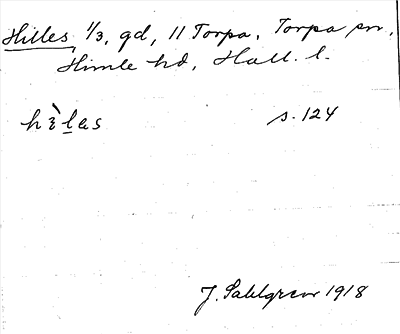 Hilles, 1/3, gd, 11 Torpa, Torpa sn,
Himle hd, Hall. l.
hὲlas s. 124
J. Sahlgren 1918